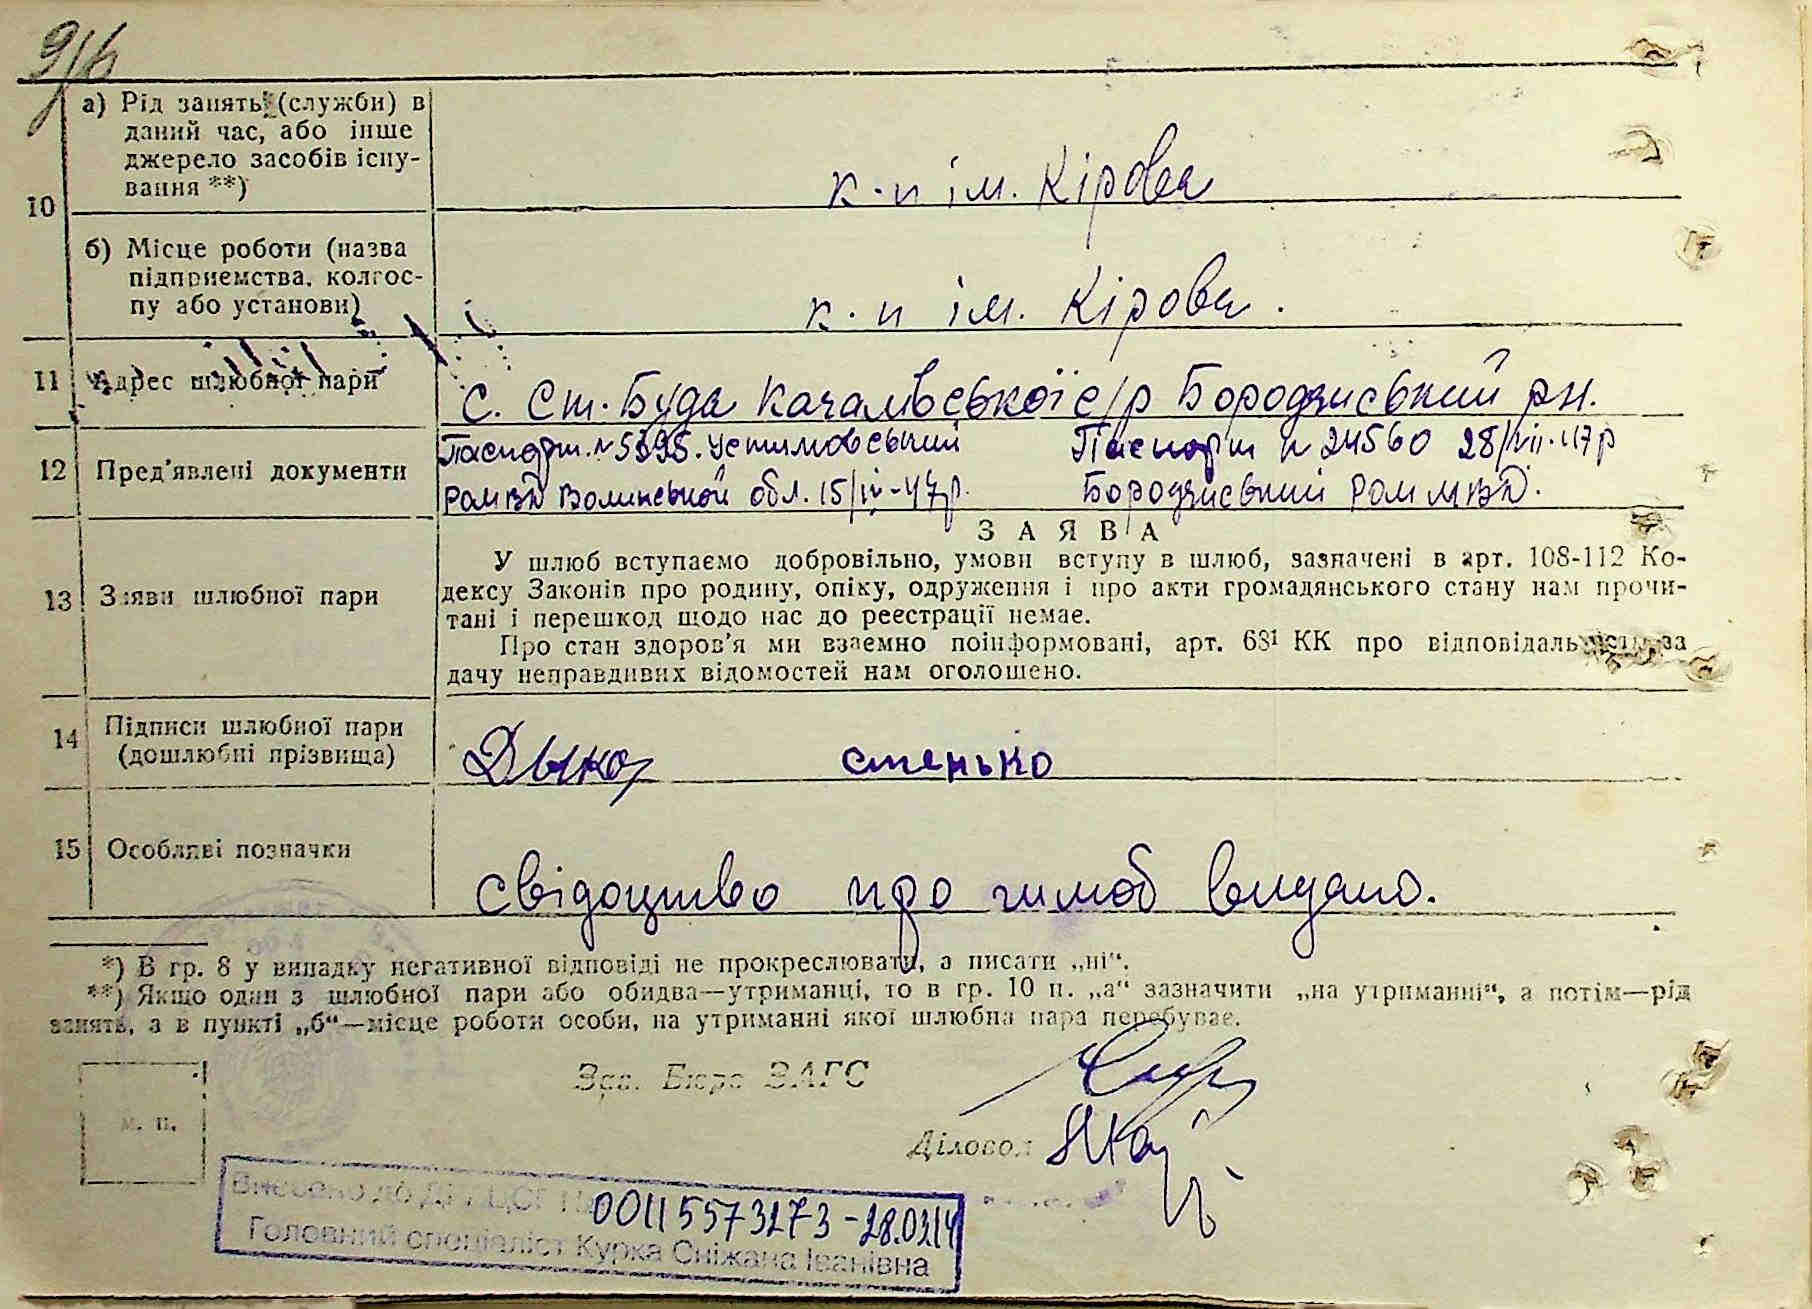 а) Рід занять (служби) в
даний час, або інше
джерело засобів існу-
вання **)
к-п ім. Кірова
10
б) Місце роботи (назва
підприємства, колгос-
пу або установи)
к-п ім. Кірова.
11 Адрес шлюбної пари
с. Ст. Буда Качалівської с/р Бородянський рн.
12 Пред'явлені документи
Паспорт № 5395. Устимовський
РОМВД Волинської обл. 15/IV-47р.
Паспорт № 24560 28/VII-47р
Бородянський РОМ МВД.
13 Заяви шлюбної пари
ЗАЯВА
У шлюб вступаємо добровільно, умови вступу в шлюб, зазначені в арт. 108-112 Ко-
дексу Законів про родину, опіку, одруження і про акти громадянського стану нам прочи-
тані і перешкод щодо нас до реєстрації немає.
Про стан здоров'я ми взаємно поінформовані, арт. 68¹ КК про відповідальність за
дачу неправдивих відомостей нам оголошено.
14 Підписи шлюбної пари
(дошлюбні прізвища)
стенько
15 Особливі позначки
свідоцтво про шлюб видано.
*) В гр. 8 у випадку негативної відповіді не прокреслювати, а писати „ні“.
**) Якщо один з шлюбної пари або обидва—утриманці, то в гр. 10 п. „а“ зазначити „на утриманні“, а потім—рід
занять, а в пункті „б“—місце роботи особи, на утриманні якої шлюбна пара перебуває.
Зав. Бюро ЗАГС
м. п.
Діловод
Внесено до ДРАЦСГ № 00115573273 - 28.03.14
Головний спеціаліст Курка Сніжана Іванівна